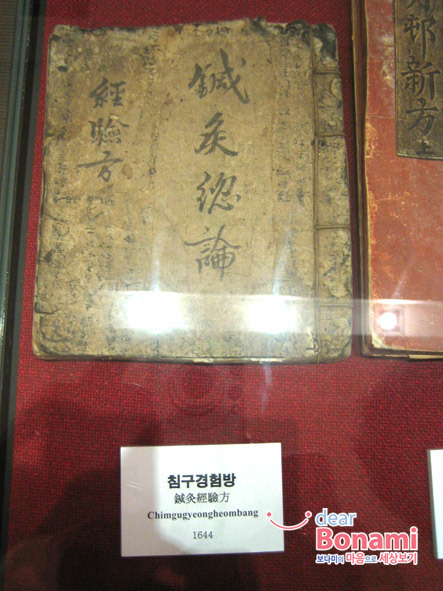 鍼灸緫論
經驗方
邨新方
침구경험방
鍼灸經驗方
Chimgugyeongheombang
1644
dear
Bonami
보나미의 마음으로 세상보기